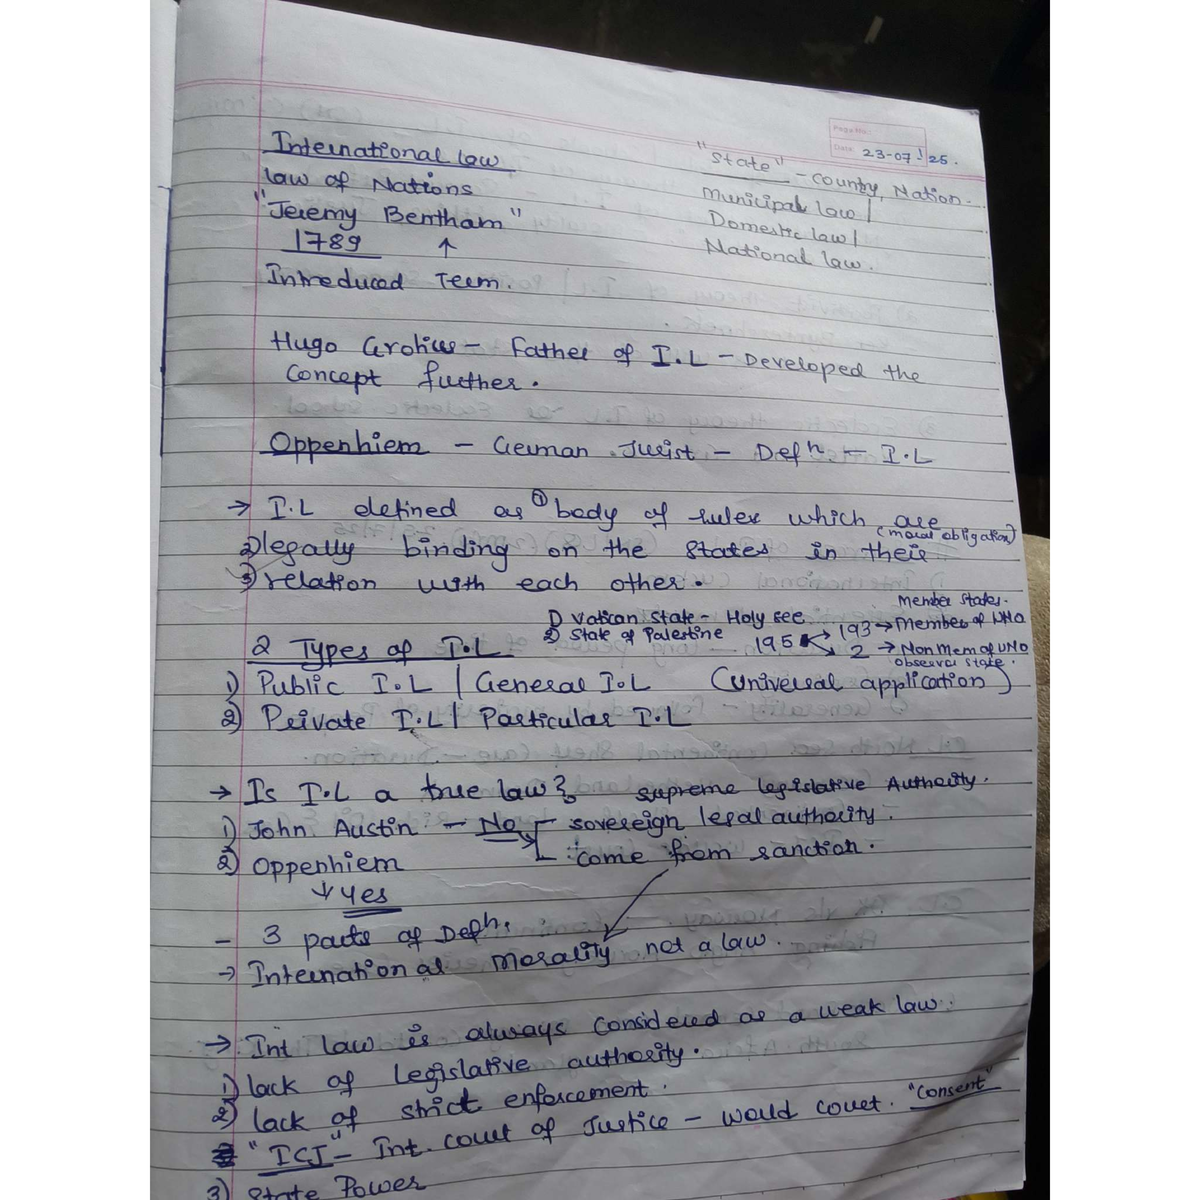 Page No.
Date 23-07-25.
International law
law of Nations
"Jeremy Bentham"
1789
Introduced Term.
"State" - Country, Nation.
Municipal law /
Domestic law /
National law.
Hugo Grotius - Father of I.L - Developed the
Concept further.
Oppenhiem - German Jurist - Defn - I.L
→ I.L defined as ① body of rules which are
(moral obligation)
2) legally binding on the states in their
3) relation with each other.
1) Vatican State - Holy see
2) State of Palestine
Member States.
195 193 → Member of UNO
2 → Non Mem of UNO
observer state.
2 Types of I.L
1) Public I.L / General I.L (Universal application)
2) Private I.L / Particular I.L
→ Is I.L a true law? supreme legislative Authority.
1) John Austin - No - sovereign legal authority.
2) Oppenhiem come from sanction.
↓ Yes
- 3 parts of Defn.
→ International Morality not a law.
→ Int law is always considered as a weak law.
1) lack of legislative authority.
2) lack of strict enforcement.
"ICJ" - Int. court of Justice - would court. "Consent"
3) State Power